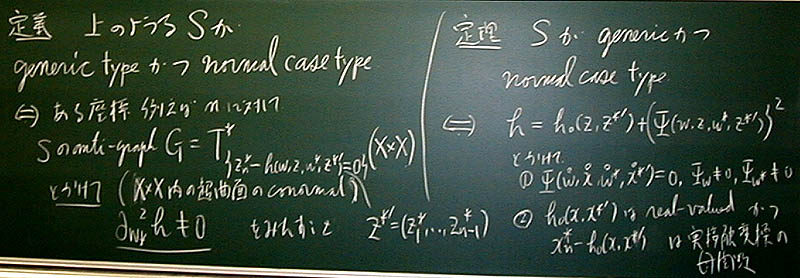 定義 上のような S が
generic type かつ normal case type
⇔ ある座標 例えば n に対して
S の anti-graph G = T*_{{z_n^* - h(w, z, w^*, z^*')=0}} (X×X)
とかけて (X×X 内の超曲面の conormal)
∂_w^2 h ≠ 0 をみたすこと z^*' = (z_1^*, ..., z_{n-1}^*)
定理 S が generic かつ
normal case type
⇔ h = h_0(z, z^*') + {Ψ(w, z, w^*, z^*')}^2
とかけて
① Ψ(ẘ, x̊, ẘ^*, x̊^*') = 0, Ψ_w ≠ 0, Ψ_{w^*} ≠ 0
② h_0(x, x^*') は real-valued かつ
x_n^* - h_0(x, x^*') は実接触変換の
母関数